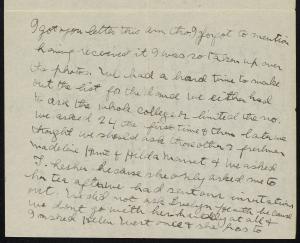 I got you letter this am tho I forgot to mention
having received it I was so taken up over
the photos. We had a hard time to make
out the list for the dance we either had
to ask the whole college or limited the no.
We asked 24 the first time & then later we
thought we should ask the other 2 freshmen
Madeline Hunt & Hilda and we asked
F. because she only asked me to
her tea after we had sent our invitations
out. We did not ask Evelyn because
we dont go with her at all &
I asked Helen West once & she has to